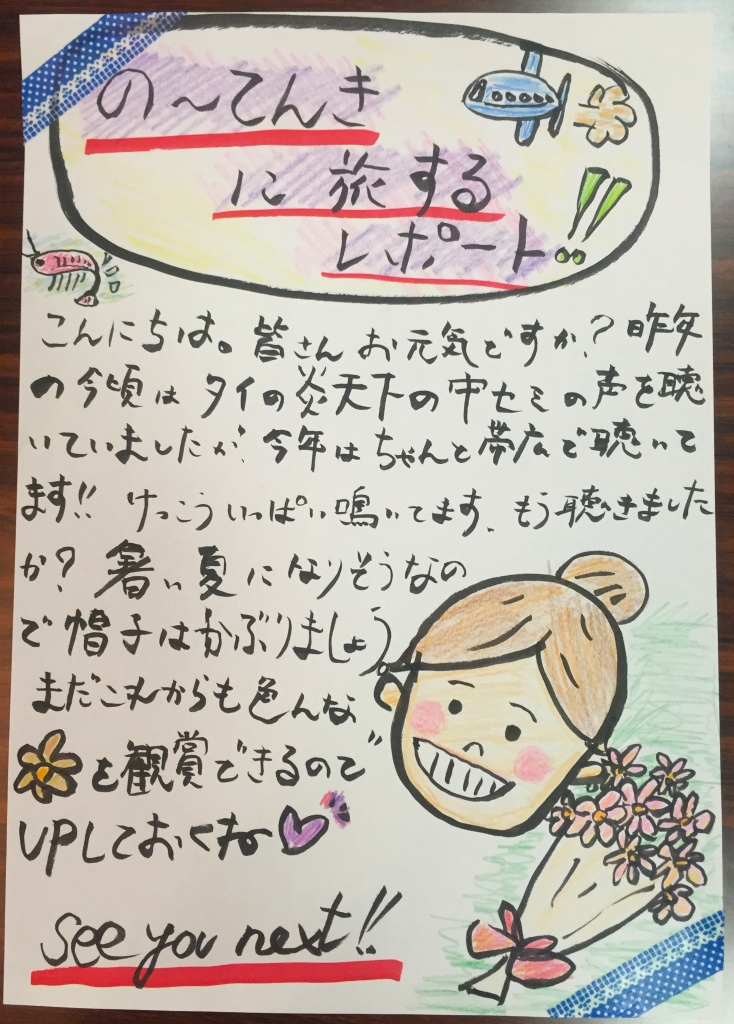 の〜てんき
に旅する
レポート!!
こんにちは。皆さんお元気ですか?昨年
の今頃はタイの炎天下の中セミの声を聴
いていましたが、今年はちゃんと帯広で聴いて
ます!!けっこういっぱい鳴いてます、もう聴きました
か?暑い夏になりそうなの
で帽子はかぶりましょう。
まだこれからも色んな
を観賞できるので
UPしておくね
see you next!!